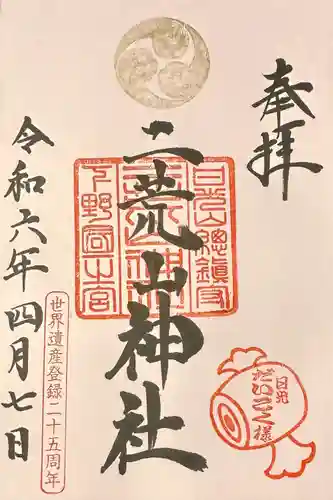 奉拝
二荒山神社
日光山總鎮守
下野國一之宮
令和六年四月七日
世界遺産登録二十五周年
日光
だいこく様